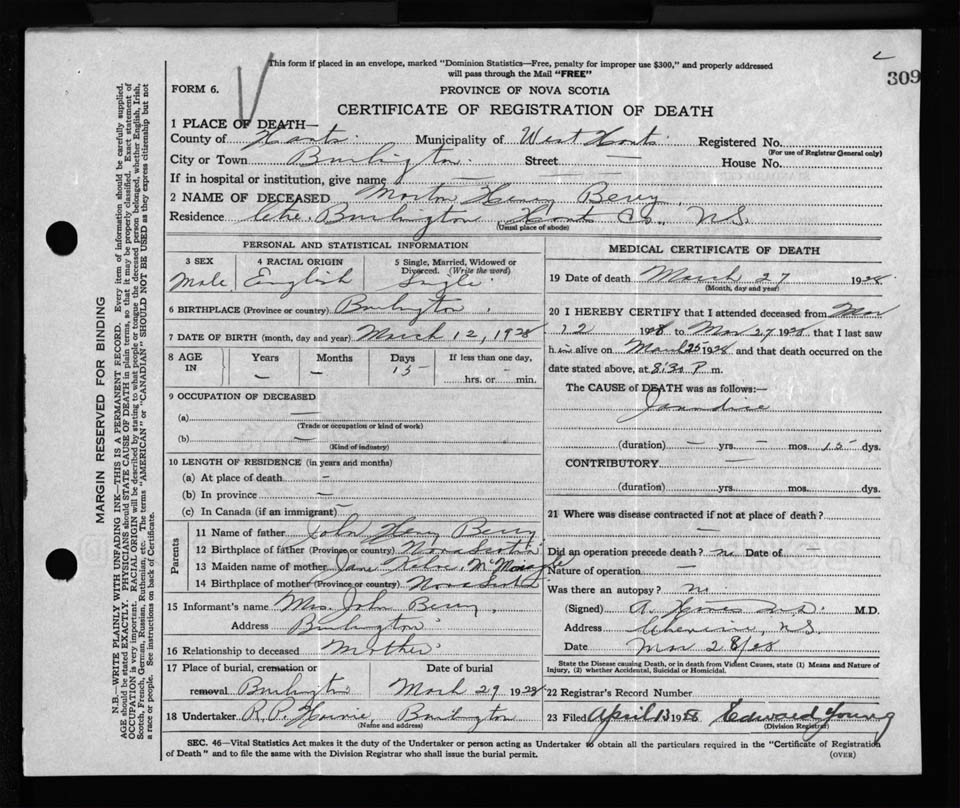 This form if placed in an envelope, marked "Dominion Statistics—Free, penalty for improper use $300," and properly addressed
will pass through the Mail "FREE"
309
FORM 6.
PROVINCE OF NOVA SCOTIA
CERTIFICATE OF REGISTRATION OF DEATH
1 PLACE OF DEATH—
County of Hants Municipality of West Hants Registered No.
(For use of Registrar General only)
City or Town Burlington Street — House No.
If in hospital or institution, give name —
2 NAME OF DECEASED Morton Henry Berry
Residence Burlington, Hants Co., N.S.
(Usual place of abode)
PERSONAL AND STATISTICAL INFORMATION
3 SEX 4 RACIAL ORIGIN 5 Single, Married, Widowed or Divorced. (Write the word)
Male English Single
6 BIRTHPLACE (Province or country) Burlington
7 DATE OF BIRTH (month, day and year) March 12, 1928
8 AGE IN Years Months Days If less than one day,
— — 15 hrs. or — min.
9 OCCUPATION OF DECEASED
(a) —
(Trade or occupation or kind of work)
(b) —
(Kind of industry)
10 LENGTH OF RESIDENCE (in years and months)
(a) At place of death —
(b) In province —
(c) In Canada (if an immigrant) —
Parents
11 Name of father John Henry Berry
12 Birthplace of father (Province or country) Nova Scotia
13 Maiden name of mother Jane
14 Birthplace of mother (Province or country) Nova Scotia
15 Informant's name Mrs. John Berry
Address Burlington
16 Relationship to deceased Mother
17 Place of burial, cremation or removal Burlington
Date of burial March 29 1928
18 Undertaker R. P. Burlington
(Name and address)
MEDICAL CERTIFICATE OF DEATH
19 Date of death March 27 1928
(Month, day and year)
20 I HEREBY CERTIFY that I attended deceased from Mar
12 1928 to Mar 27, 1928 that I last saw
him alive on March 25 1928 and that death occurred on the
date stated above, at 8:30 P m.
The CAUSE of DEATH was as follows:—
Jaundice
(duration) — yrs. — mos. 15 dys.
CONTRIBUTORY —
(duration) yrs. mos. dys.
21 Where was disease contracted if not at place of death?
—
Did an operation precede death? no Date of —
Nature of operation —
Was there an autopsy? no
(Signed) M.D.
Address Cheverie, N.S.
Date Mar 28/28
State the Disease causing Death, or in death from Violent Causes, state (1) Means and Nature of
Injury, (2) whether Accidental, Suicidal or Homicidal.
22 Registrar's Record Number
23 Filed April 13 1928 Edward Young
(Division Registrar)
SEC. 46—Vital Statistics Act makes it the duty of the Undertaker or person acting as Undertaker to obtain all the particulars required in the "Certificate of Registration
of Death" and to file the same with the Division Registrar who shall issue the burial permit.
(OVER)
MARGIN RESERVED FOR BINDING
N.B.—WRITE PLAINLY WITH UNFADING INK—THIS IS A PERMANENT RECORD. Every item of information should be carefully supplied.
AGE should be stated EXACTLY. PHYSICIANS should STATE CAUSE OF DEATH in plain terms, so that it may be properly classified. Exact statement of
OCCUPATION is very important. RACIAL ORIGIN will be described by stating to what people or tongue the deceased person belonged, whether English, Irish,
Scotch, French, German, Russian, Ruthenian, etc. The terms "AMERICAN" or "CANADIAN" SHOULD NOT BE USED as they express citizenship but not
a race or people. See instructions on back of Certificate.